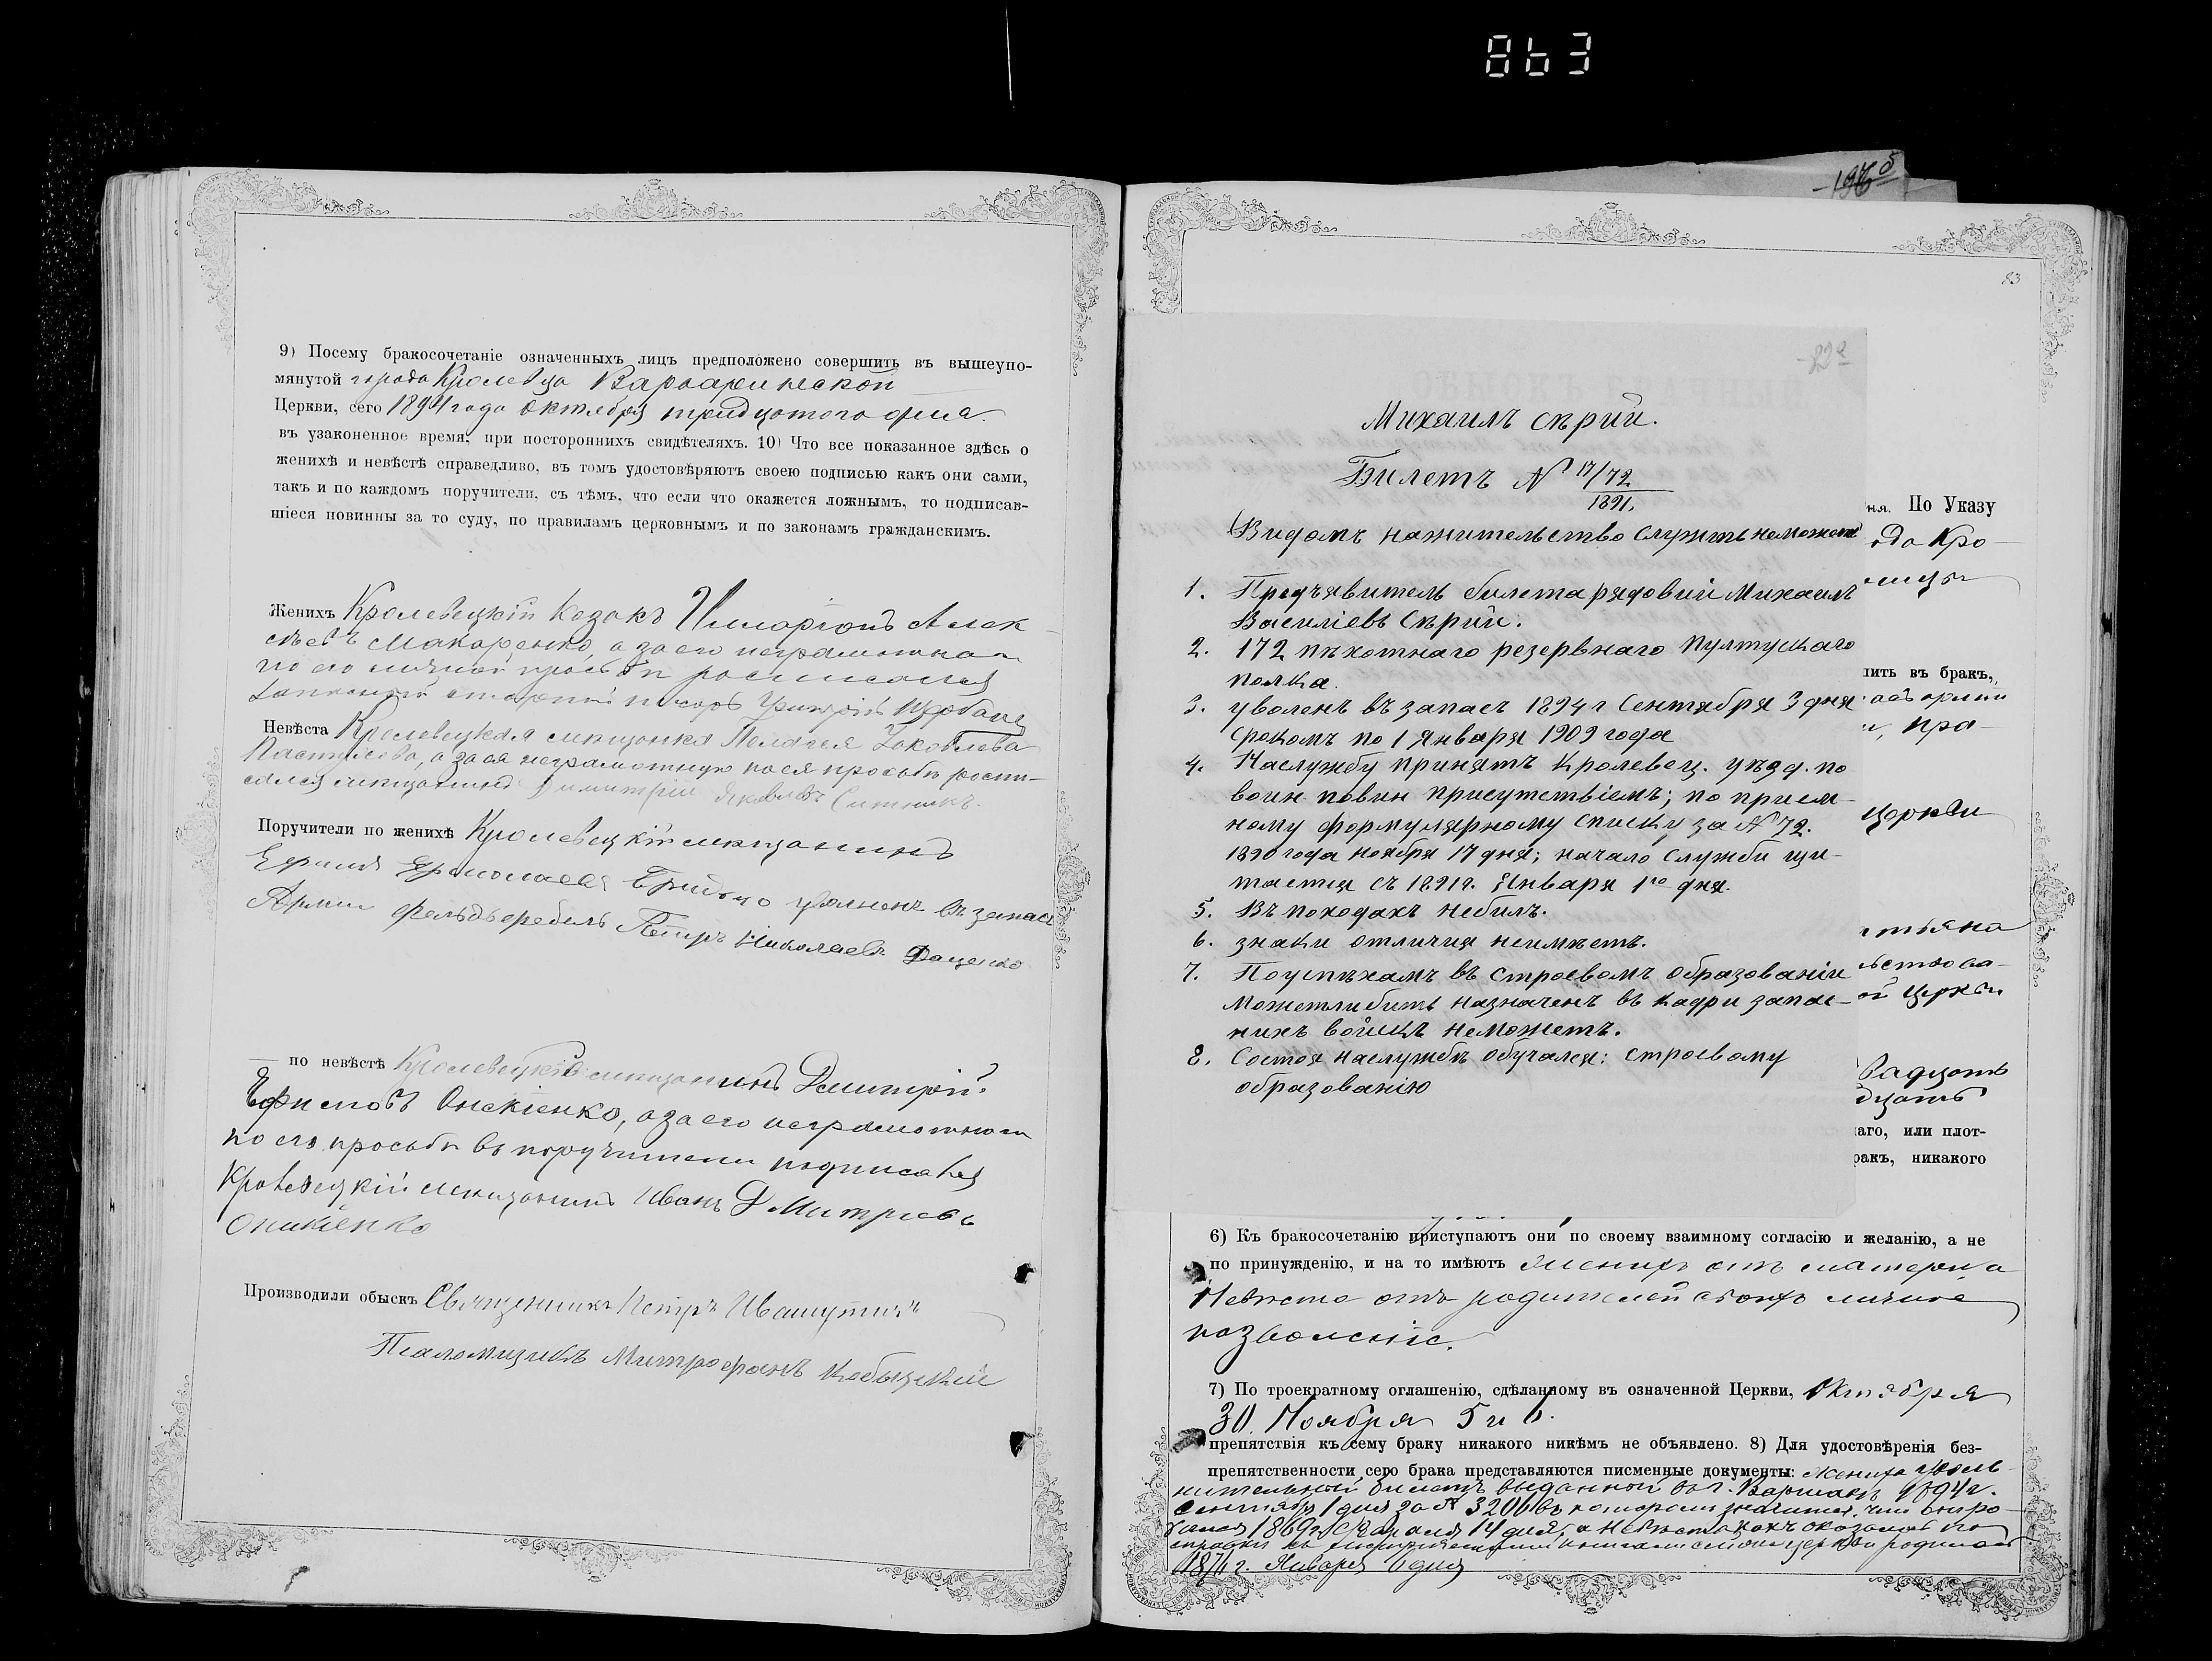 863
1965
9) Посему бракосочетаніе означенныхъ лицъ предположено совершить въ вышеупо-
мянутой города Кролевца Варваринской
Церкви, сего 1894 года Октября тридцатого дня
въ узаконенное время, при постороннихъ свидѣтеляхъ. 10) Что все показанное здѣсь о
женихѣ и невѣстѣ справедливо, въ томъ удостовѣряютъ своею подписью какъ они сами,
такъ и по каждомъ поручители, съ тѣмъ, что если что окажется ложнымъ, то подписав-
шіеся повинны за то суду, по правиламъ церковнымъ и по законамъ гражданскимъ.
Женихъ Кролевецкій Козакъ Алек-
сѣевъ Макаренко, а за его неграмотнаго
по его личной просьбѣ росписался
Запасный старшій писарь Григорій
Невѣста Кролевецкая мѣщанка Пелагея Яковлева
а за ея неграмотную по ея просьбѣ роспи-
сался мѣщанинъ Димитрій Яковлевъ Ситникъ.
Поручители по женихѣ Кролевецкій мѣщанинъ
Ефимъ Ермолаевъ уволенъ въ запасъ
Арміи Фельдфебель Петръ Николаевъ Доценко
по невѣстѣ Кролевецкій мѣщанинъ Дмитрій
Ефимовъ Оникіенко, а за его неграмотнаго
по его просьбѣ въ поручители подписался
Кролевецкій мѣщанинъ Иванъ Дмитріевъ
Оникіенко
Производили обыскъ Священникъ Петръ Ивашутичъ
Псаломщикъ Митрофанъ Кобыщкій
83
82а
Михаилъ Сѣрий.
Билетъ N 17/72
1891.
(Видомъ нажительство служить неможет)
1. Предъявитель билета рядовий Михаилъ
Василіевъ Сѣрий.
2. 172 пѣхотнаго резервнаго Пултускаго
полка.
3. уволенъ въ запасъ 1894 г Сентября 3 дня
срокомъ по 1 Января 1909 года
4. Наслужбу принятъ Кролевец. уѣзд. по
воин. повин присутствіемъ; по пріем-
ному формулярному списку за N 72.
1890 года ноября 17 дня; начало службы щи-
тается съ 1891 г. Января 1го дня.
5. Въ походахъ небилъ.
6. знаки отличия неимѣетъ.
7. Поуспѣхамъ въ строевомъ образованіи
можетли бить назначенъ въ кадри запас-
нихъ войскъ неможетъ.
8. Состоя наслужбѣ обучался: строевому
образованію
ня. По Указу
да Кро-
ицы
ить въ бракъ,
асъ арміи
, пра-
Церкви
стьяна
ой Церкви
Вадцать
дцать
аго, или плот-
ракъ, никакого
6) Къ бракосочетанію приступаютъ они по своему взаимному согласію и желанію, а не
по принужденію, и на то имѣютъ Женихъ отъ матери, а
Невѣста отъ родителей своихъ личное
позволеніе.
7) По троекратному оглашенію, сдѣланному въ означенной Церкви, Октября
30. Ноября 5 и 6.
препятствія къ сему браку никакого никѣмъ не объявлено. 8) Для удостовѣренія без-
препятственности сего брака представляются писменные документы: жениха уволь-
нительный билетъ выданный въ г. Варшавѣ 1894 г.
Сентября 1 дня за N 3206 въ которомъ значится, что онъ ро-
дился 1869 г. 14 дня, а Невѣста какъ оказалось по
справкѣ съ метрическими книгами сей церкви родилась
1871 г. Января 6 дня